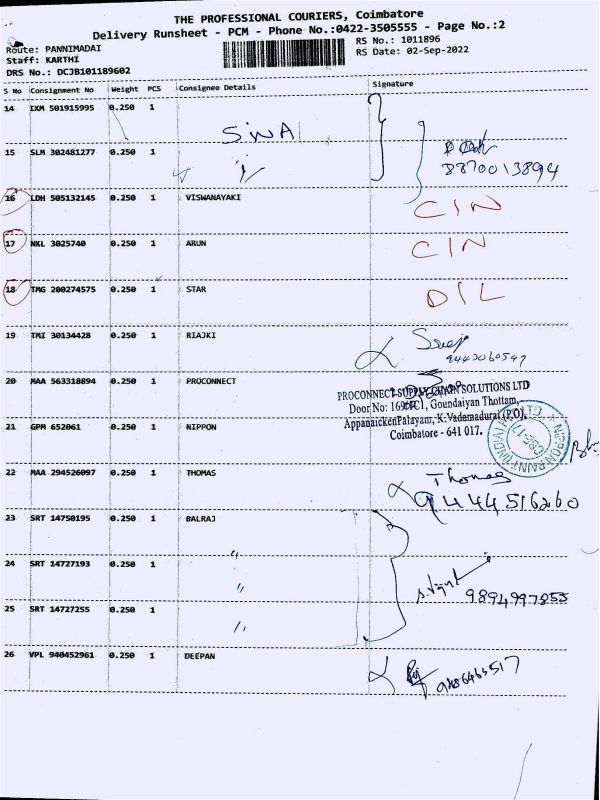 THE PROFESSIONAL COURIERS, Coimbatore
Delivery Runsheet - PCM - Phone No.:0422-3505555 - Page No.:2
Route: PANNIMADAI
RS No.: 1011896
Staff: KARTHI
RS Date: 02-Sep-2022
DRS No.: DCJB101189602
S No Consignment No Weight PCS Consignee Details Signature
14 IXM 501915995 0.250 1
SIWA
15 SLM 302481277 0.250 1
8870013894
16 LDH 505132145 0.250 1 VISWANAYAKI CIN
17 NKL 3025740 0.250 1 ARUN CIN
18 TMG 200274575 0.250 1 STAR DIL
19 TMI 30134428 0.250 1 RIAJKI
9442060547
20 MAA 563318894 0.250 1 PROCONNECT
PROCONNECT SUPPLY CHAIN SOLUTIONS LTD
Goundaiyan Thottam,
AppanaickenPalayam, K.Vadamadurai (P.O),
Coimbatore - 641 017.
21 GPM 652061 0.250 1 NIPPON
NIPPON PAINT (INDIA)
22 MAA 294526097 0.250 1 THOMAS Thomas
9444516260
23 SRT 14750195 0.250 1 BALRAJ
24 SRT 14727193 0.250 1 "
9894997855
25 SRT 14727255 0.250 1 "
26 VPL 940452961 0.250 1 DEEPAN